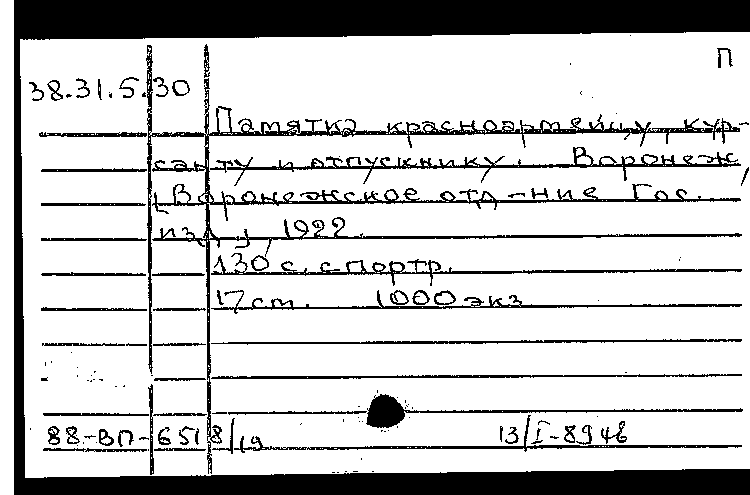 П
38.31.5.30
Памятка красноармейцу, кур-
санту и отпускнику. Воронеж,
[Воронежское отд-ние Гос.
изд.], 1922.
130 с. с портр.
17 cm. 1000 экз
88-ВП-6518/19 13/I-894б